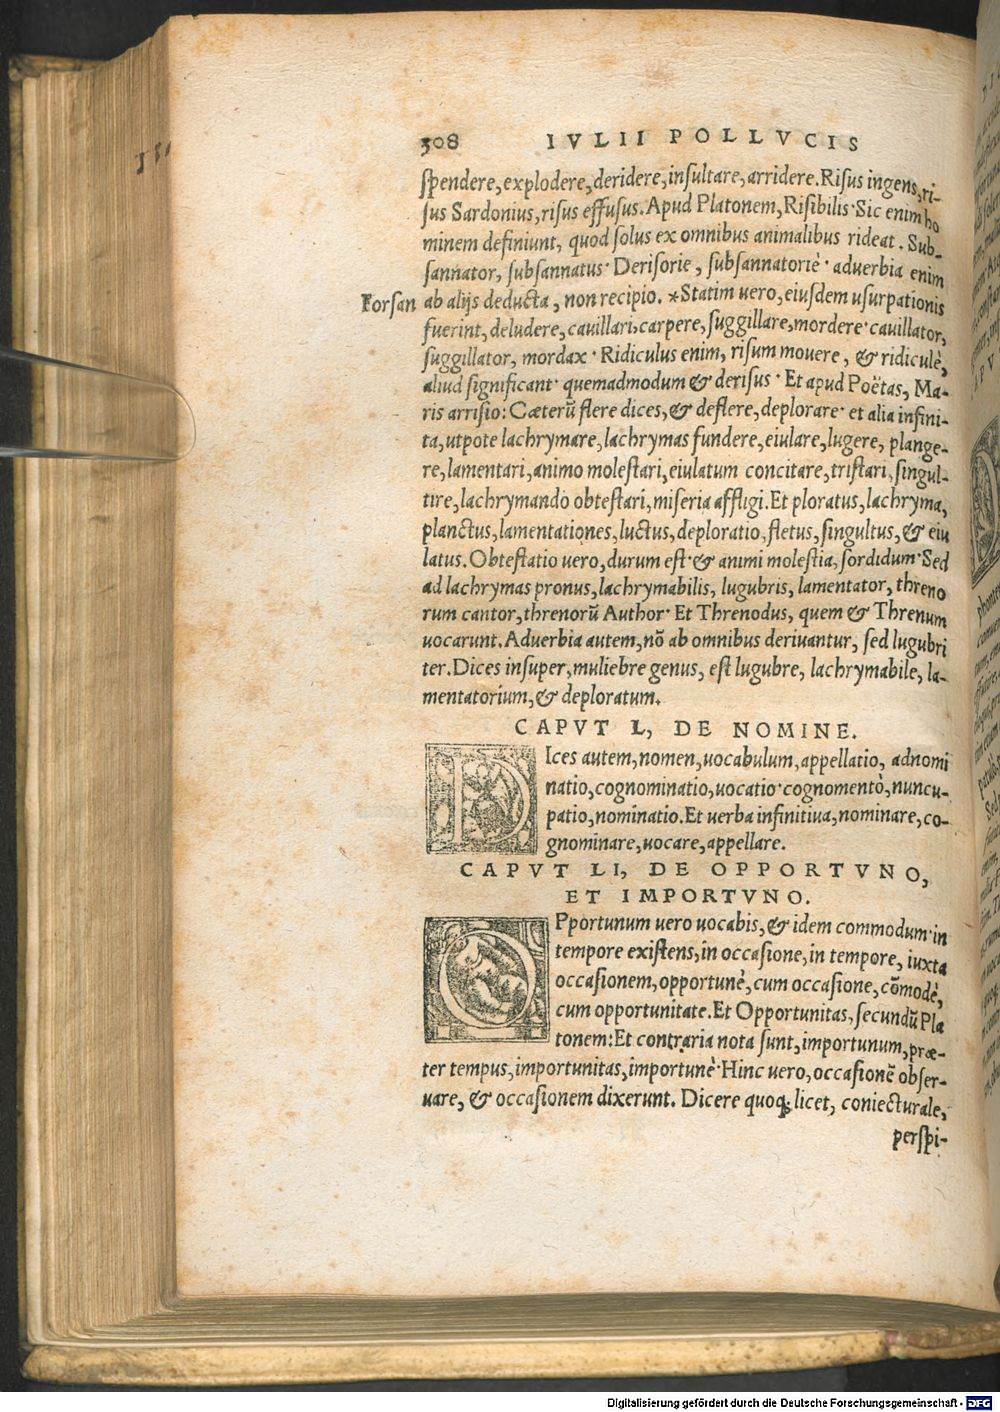 308 IVLII POLLVCIS
spendere, explodere, deridere, insultare, arridere. Risus ingens, ri-
sus Sardonius, risus effusus. Apud Platonem, Risibilis· Sic enim ho
minem definiunt, quod solus ex omnibus animalibus rideat. Sub-
sannator, subsannatus· Derisorie, subsannatoriè· aduerbia enim
Forsan ab alijs deducta, non recipio. *Statim uero, eiusdem usurpationis
fuerint, deludere, cauillari, carpere, suggillare, mordere· cauillator,
suggillator, mordax· Ridiculus enim, risum mouere, & ridiculè,
aliud significant· quemadmodum & derisus· Et apud Poëtas, Ma-
ris arrisio: Cæterũ flere dices, & deflere, deplorare· et alia infini-
ta, utpote lachrymare, lachrymas fundere, eiulare, lugere, plange-
re, lamentari, animo molestari, eiulatum concitare, tristari, singul-
tire, lachrymando obtestari, miseria affligi. Et ploratus, lachryma,
planctus, lamentationes, luctus, deploratio, fletus, singultus, & eiu
latus. Obtestatio uero, durum est· & animi molestia, sordidum· Sed
ad lachrymas pronus, lachrymabilis, lugubris, lamentator, threno
rum cantor, threnorũ Author· Et Threnodus, quem & Threnum
uocarunt. Aduerbia autem, nõ ab omnibus deriuantur, sed lugubri
ter. Dices insuper, muliebre genus, est lugubre, lachrymabile, la-
mentatorium, & deploratum.
CAPVT L, DE NOMINE.
DIces autem, nomen, uocabulum, appellatio, adnomi
natio, cognominatio, uocatio· cognomentò, nuncu-
patio, nominatio. Et uerba infinitiua, nominare, co-
gnominare, uocare, appellare.
CAPVT LI, DE OPPORTVNO,
ET IMPORTVNO.
OPportunum uero uocabis, & idem commodum· in
tempore existens, in occasione, in tempore, iuxta
occasionem, opportunè, cum occasione, cõmodè,
cum opportunitate. Et Opportunitas, secundũ Pla
tonem: Et contraria nota sunt, importunum, præ-
ter tempus, importunitas, importunè· Hinc uero, occasionẽ obser-
uare, & occasionem dixerunt. Dicere quoq; licet, coniecturale,
perspi-
Digitalisierung gefördert durch die Deutsche Forschungsgemeinschaft - DFG